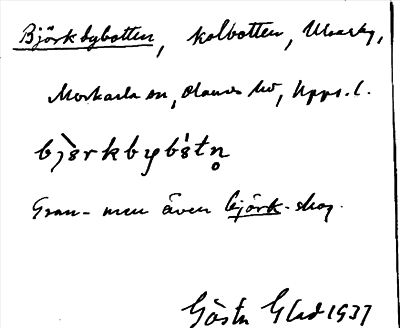 Björkbybotten, kolbotten, Ubby,
Morkarla sn, Olands hd, Upps. l.
bjö̀rkbybót​n̥
Gran- men även björk-skog.
Gösta Glad 1937